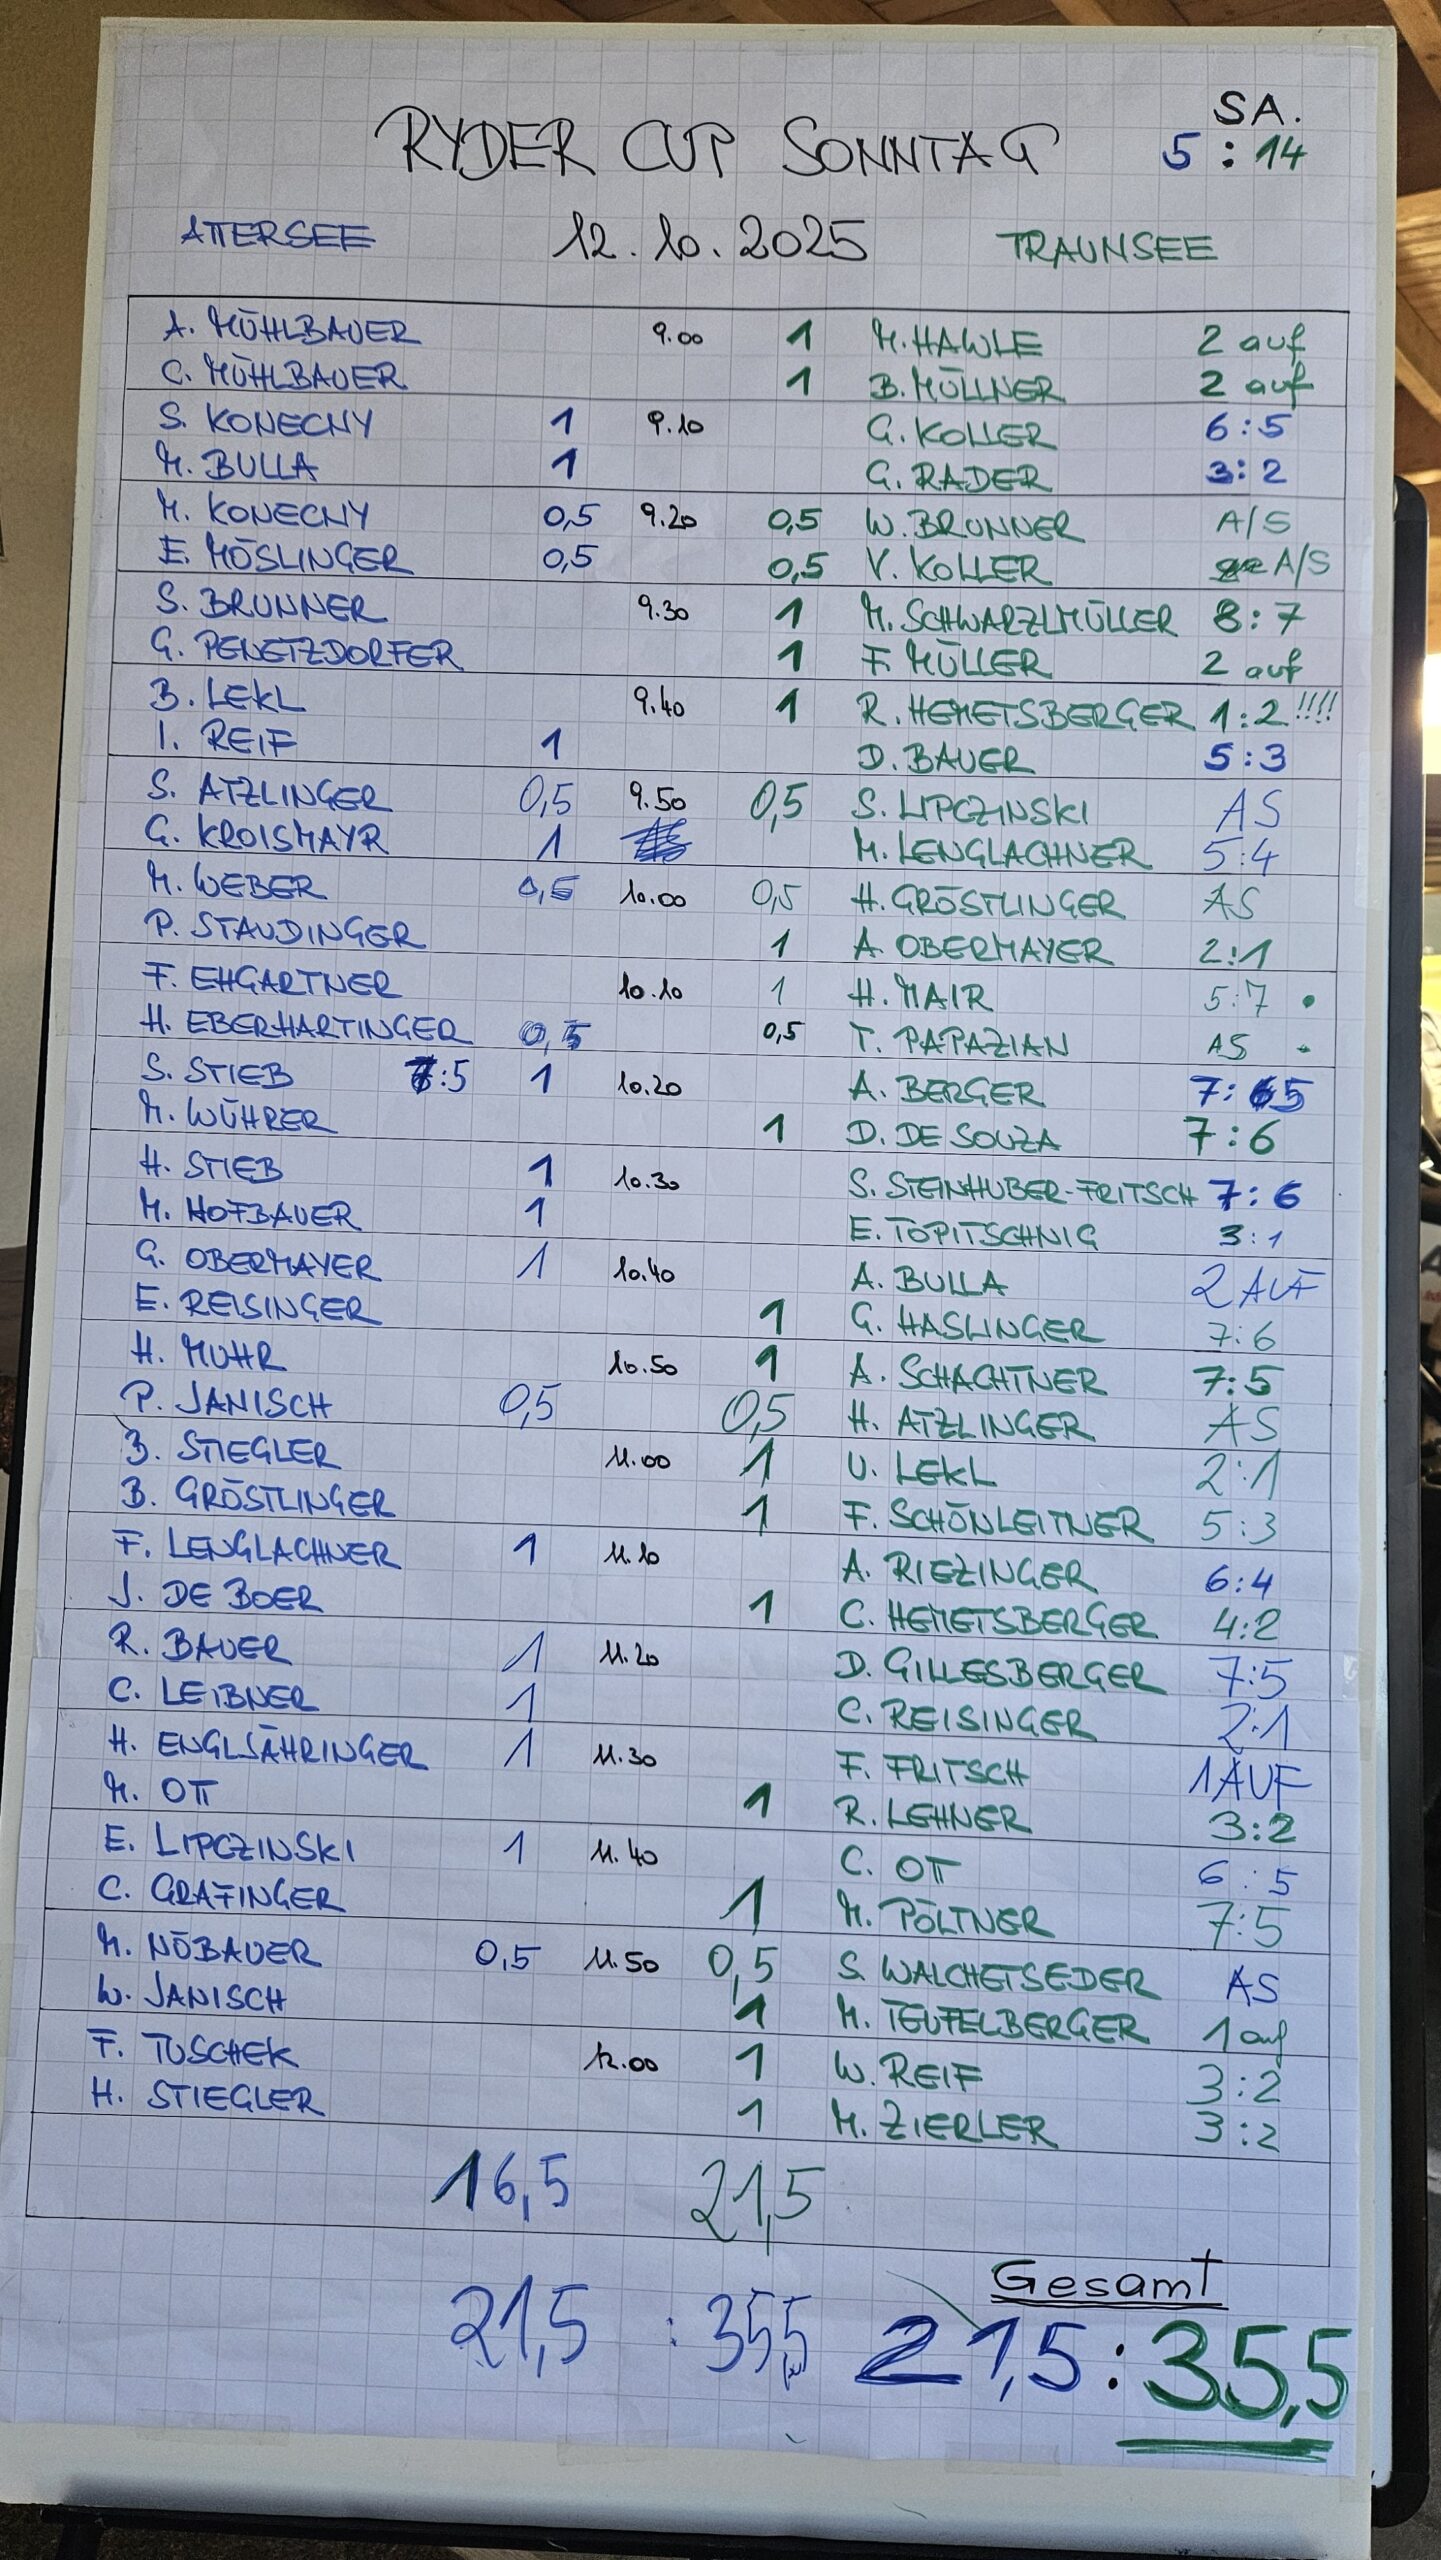 SA.
RYDER CUP SONNTAG 5 : 14
ATTERSEE 12.10.2025 TRAUNSEE
A. MÜHLBAUER 9.00 1 M. HAWLE 2 auf
C. MÜHLBAUER 1 B. MÜLLNER 2 auf
S. KONECNY 1 9.10 G. KOLLER 6:5
M. BULLA 1 G. RADER 3:2
M. KONECNY 0,5 9.20 0,5 W. BRUNNER A/S
E. MÖSLINGER 0,5 0,5 V. KOLLER A/S
S. BRUNNER 9.30 1 M. SCHWARZLMÜLLER 8:7
G. PENETZDORFER 1 F. MÜLLER 2 auf
B. LEKL 9.40 1 R. HEMETSBERGER 1:2 !!!!
I. REIF 1 D. BAUER 5:3
S. ATZLINGER 0,5 9.50 0,5 S. LIPCZINSKI AS
G. KROISMAYR 1 M. LENGLACHNER 5:4
M. WEBER 0,5 10.00 0,5 H. GRÖSTLINGER AS
P. STAUDINGER 1 A. OBERMAYER 2:1
F. EHGARTNER 10.10 1 H. MAIR 5:7 •
H. EBERHARTINGER 0,5 0,5 T. PAPAZIAN AS •
S. STIEB 7:5 1 10.20 A. BERGER 7:5
M. WÜHRER 1 D. DE SOUZA 7:6
H. STIEB 1 10.30 S. STEINHUBER-FRITSCH 7:6
M. HOFBAUER 1 E. TOPITSCHNIG 3:1
G. OBERMAYER 1 10.40 A. BULLA 2 AUF
E. REISINGER 1 G. HASLINGER 7:6
H. MUHR 10.50 1 A. SCHACHTNER 7:5
P. JANISCH 0,5 0,5 H. ATZLINGER AS
B. STIEGLER 11.00 1 U. LEKL 2:1
B. GRÖSTLINGER 1 F. SCHÖNLEITNER 5:3
F. LENGLACHNER 1 11.10 A. RIEZINGER 6:4
J. DE BOER 1 C. HEMETSBERGER 4:2
R. BAUER 1 11.20 D. GILLESBERGER 7:5
C. LEIBNER 1 C. REISINGER 2:1
H. ENGLJÄHRINGER 1 11.30 F. FRITSCH 1 AUF
M. OTT 1 R. LEHNER 3:2
E. LIPCZINSKI 1 11.40 C. OTT 6:5
C. GRAFINGER 1 M. PÖLTNER 7:5
M. NÖBAUER 0,5 11.50 0,5 S. WALCHETSEDER AS
W. JANISCH 1 M. TEUFELBERGER 1 auf
F. TUSCHEK 12.00 1 W. REIF 3:2
H. STIEGLER 1 M. ZIERLER 3:2
16,5 21,5
Gesamt
21,5 : 35,5 21,5 : 35,5